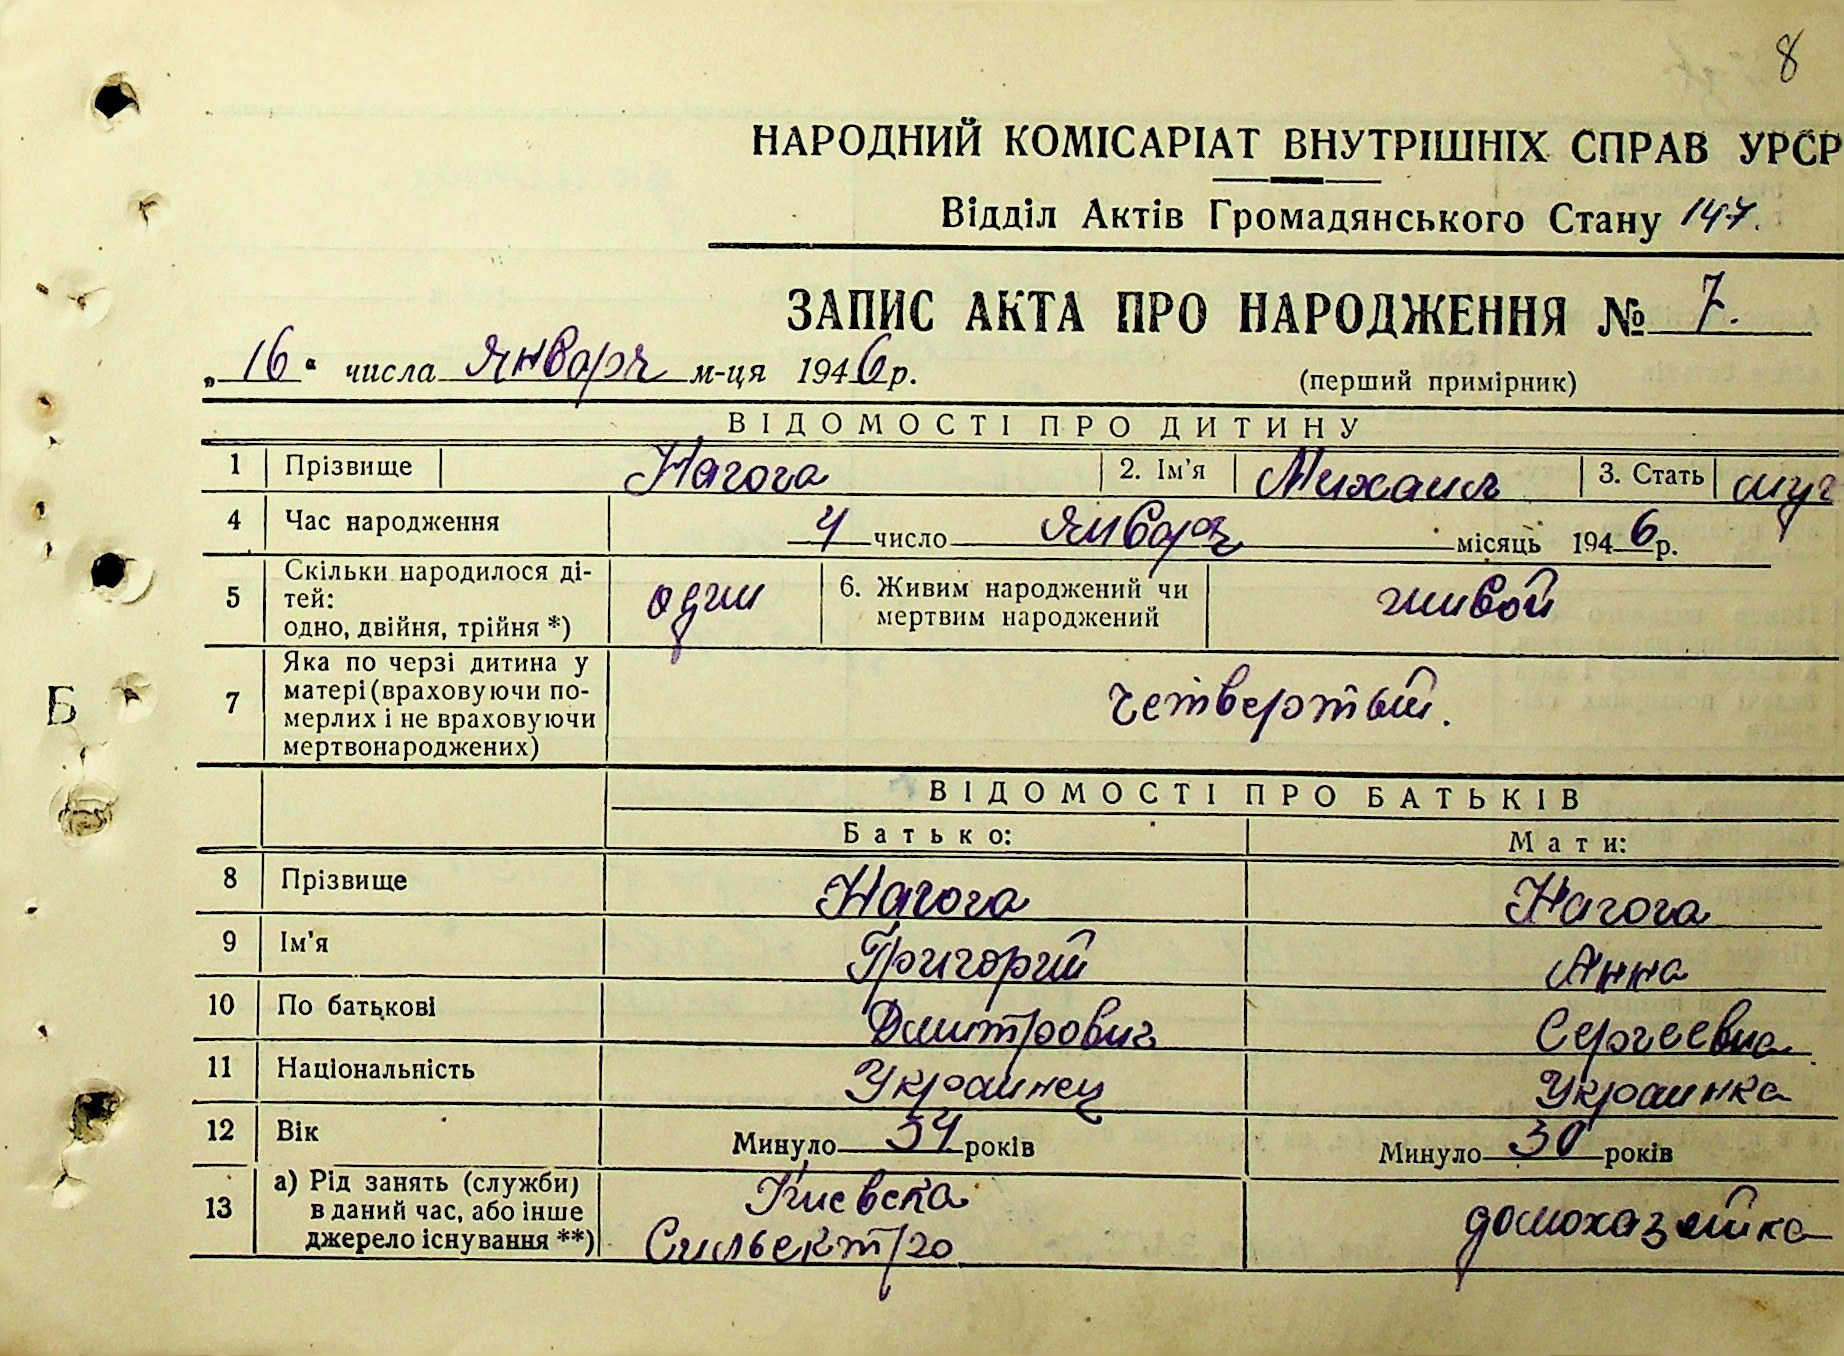 8
НАРОДНИЙ КОМІСАРІАТ ВНУТРІШНІХ СПРАВ УРСР
Відділ Актів Громадянського Стану 147.
ЗАПИС АКТА ПРО НАРОДЖЕННЯ № 7.
„16“ числа января м-ця 1946 р.
(перший примірник)
ВІДОМОСТІ ПРО ДИТИНУ
1 Прізвище Нагога 2. Ім'я Михаил 3. Стать муж
4 Час народження 4 число января місяць 1946 р.
5 Скільки народилося ді-
тей:
одно, двійня, трійня *) один 6. Живим народжений чи
мертвим народжений живой
7 Яка по черзі дитина у
матері (враховуючи по-
мерлих і не враховуючи
мертвонароджених) четвертый.
Б
ВІДОМОСТІ ПРО БАТЬКІВ
Батько: Мати:
8 Прізвище Нагога Нагога
9 Ім'я Григорий Анна
10 По батькові Дмитрович Сергеевна
11 Національність Украинец Украинка
12 Вік Минуло 34 років Минуло 30 років
13 а) Рід занять (служби)
в даний час, або інше
джерело існування **)
Киевска
Сильектро
домохазяйка